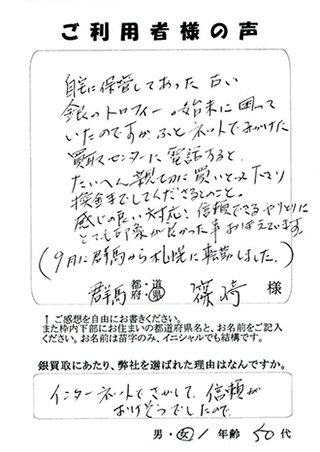 ご利用者様の声
自宅に保管してあった古い
銀のトロフィーの始末に困って
いたのですが、ふとネットでみかけた
買取センターに電話すると、
たいへん親切に買いとって下さり
換金までしてくださるとのこと。
感じの良い対応、信頼できるやりとりに
とても印象が良かった事おぼえています。
(9月に群馬から札幌に転勤しました。)
群馬 都・道 府・県 篠崎 様
↑ご感想を自由にお書きください。
また枠内下部にお住まいの都道府県名と、お名前をご記入
ください。お名前は苗字のみ、イニシャルでも結構です。
銀買取にあたり、弊社を選ばれた理由はなんですか。
インターネットでさがして、信頼が
おけそうでしたので
男・女 / 年齢 50代